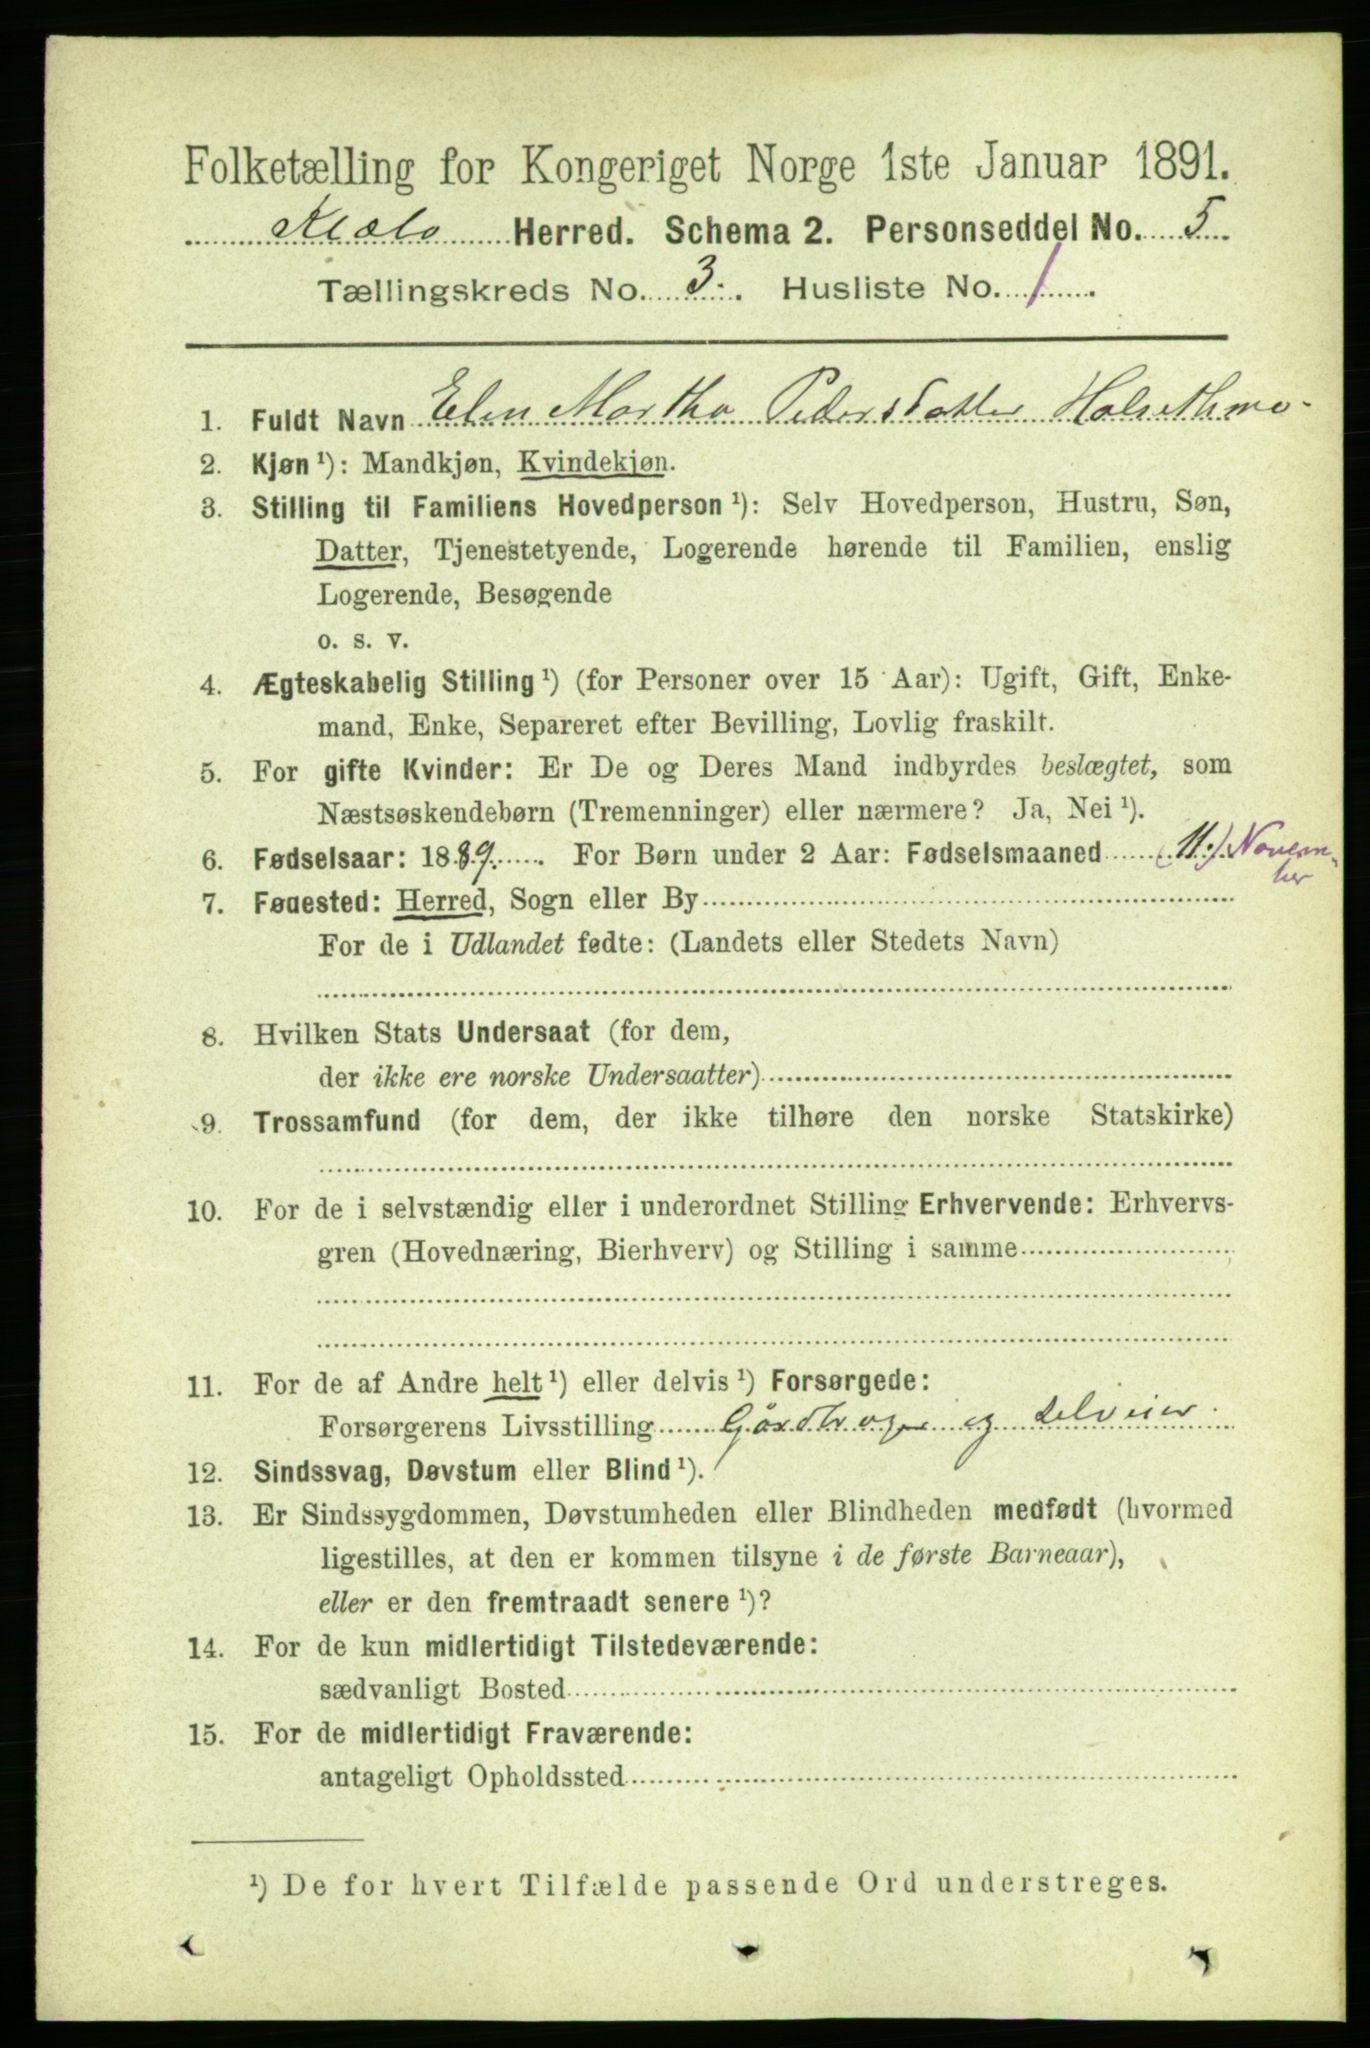 Folketælling for Kongeriget Norge 1ste Januar 1891.
Herred. Schema 2. Personseddel No. 5
Tællingskreds No. 3. Husliste No. 1
1. Fuldt Navn Elen Martha Pedersdatter Halsethmo
2. Kjøn ¹): Mandkjøn, Kvindekjøn.
3. Stilling til Familiens Hovedperson ¹): Selv Hovedperson, Hustru, Søn,
Datter, Tjenestetyende, Logerende hørende til Familien, enslig
Logerende, Besøgende
o. s. v.
4. Ægteskabelig Stilling ¹) (for Personer over 15 Aar): Ugift, Gift, Enke-
mand, Enke, Separeret efter Bevilling, Lovlig fraskilt.
5. For gifte Kvinder: Er De og Deres Mand indbyrdes beslægtet, som
Næstsøskendebørn (Tremenninger) eller nærmere? Ja, Nei ¹).
6. Fødselsaar: 1889. For Børn under 2 Aar: Fødselsmaaned (11.) Novem-
ber
7. Fødested: Herred, Sogn eller By
For de i Udlandet fødte: (Landets eller Stedets Navn)
8. Hvilken Stats Undersaat (for dem,
der ikke ere norske Undersaatter)
9. Trossamfund (for dem, der ikke tilhøre den norske Statskirke)
10. For de i selvstændig eller i underordnet Stilling Erhvervende: Erhvervs-
gren (Hovednæring, Bierhverv) og Stilling i samme
11. For de af Andre helt ¹) eller delvis ¹) Forsørgede:
Forsørgerens Livsstilling Gårdbruger og selveier.
12. Sindssvag, Døvstum eller Blind ¹).
13. Er Sindssygdommen, Døvstumheden eller Blindheden medfødt (hvormed
ligestilles, at den er kommen tilsyne i de første Barneaar),
eller er den fremtraadt senere ¹)?
14. For de kun midlertidigt Tilstedeværende:
sædvanligt Bosted
15. For de midlertidigt Fraværende:
antageligt Opholdssted
¹) De for hvert Tilfælde passende Ord understreges.